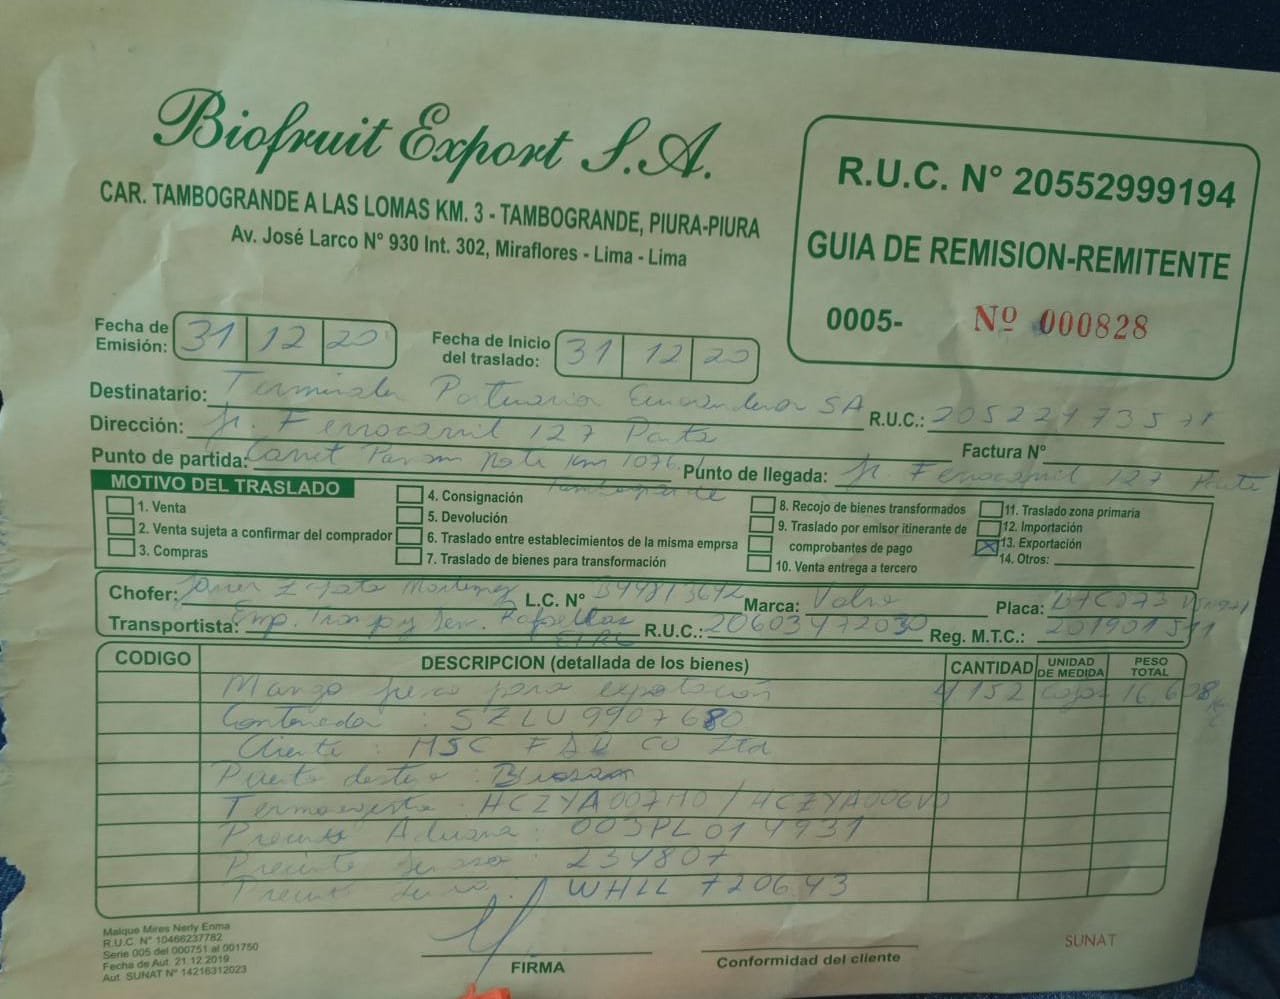 Biofruit Export S.A.
CAR. TAMBOGRANDE A LAS LOMAS KM. 3 - TAMBOGRANDE, PIURA-PIURA
Av. José Larco N° 930 Int. 302, Miraflores - Lima - Lima
R.U.C. N° 20552999194
GUIA DE REMISION-REMITENTE
0005- Nº 000828
Fecha de Emisión: 31 12 20
Fecha de Inicio del traslado: 31 12 20
Destinatario: Terminales Portuarios Euroandinos SA R.U.C.: 20522473571
Dirección: Jr. Ferrocarril 127 Paita Factura N°
Punto de partida: Carret Panam Norte Km 1076 Tambogrande Punto de llegada: Jr. Ferrocarril 127 Paita
MOTIVO DEL TRASLADO
1. Venta
2. Venta sujeta a confirmar del comprador
3. Compras
4. Consignación
5. Devolución
6. Traslado entre establecimientos de la misma emprsa
7. Traslado de bienes para transformación
8. Recojo de bienes transformados
9. Traslado por emisor itinerante de
comprobantes de pago
10. Venta entrega a tercero
11. Traslado zona primaria
12. Importación
13. Exportación
14. Otros:
Chofer: Zapata Martinez L.C. N° Marca: Volvo Placa:
Transportista: Emp. Transp y Ser. Rafaellas EIRL R.U.C.: 20603472030 Reg. M.T.C.:
CODIGO DESCRIPCION (detallada de los bienes) CANTIDAD UNIDAD DE MEDIDA PESO TOTAL
Mango fresco para exportación 4,152 cajas 16,608 Kg
Contenedor : SZLU 9907680
Cliente : HSC F&D CO Ltd
Puerto destino :
Termoregistro : HCZYA007H0 / HCZYA006V0
Precinto Aduana : 003PL014931
Precinto Senasa : 234807
Precinto : WHLL 720643
FIRMA
Conformidad del cliente
Malque Mires Nerly Enma
R.U.C. N° 10466237782
Serie 005 del 000751 al 001750
Fecha de Aut. 21.12.2019
Aut. SUNAT N° 14216312023
SUNAT